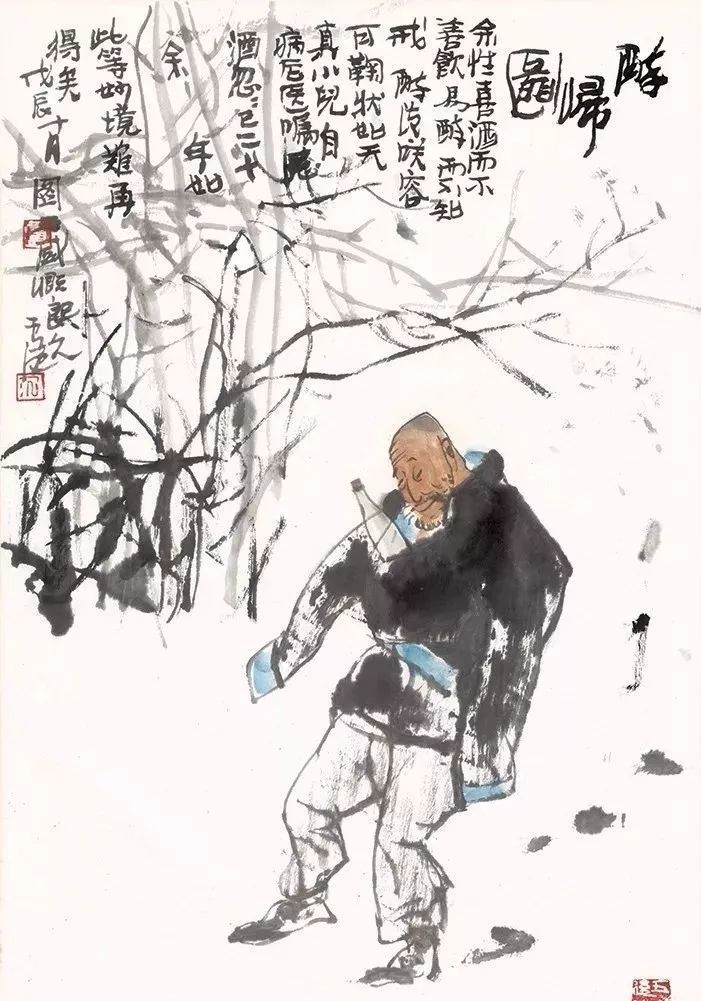 醉歸圖
余性喜酒而不
善飲易醉而不知
戒醉後咲容
可鞠狀如天
真小兒自
病后医嘱戒
酒忽忽已二十
余年如
此等妙境難再
得矣戊辰十月圖
感慨久